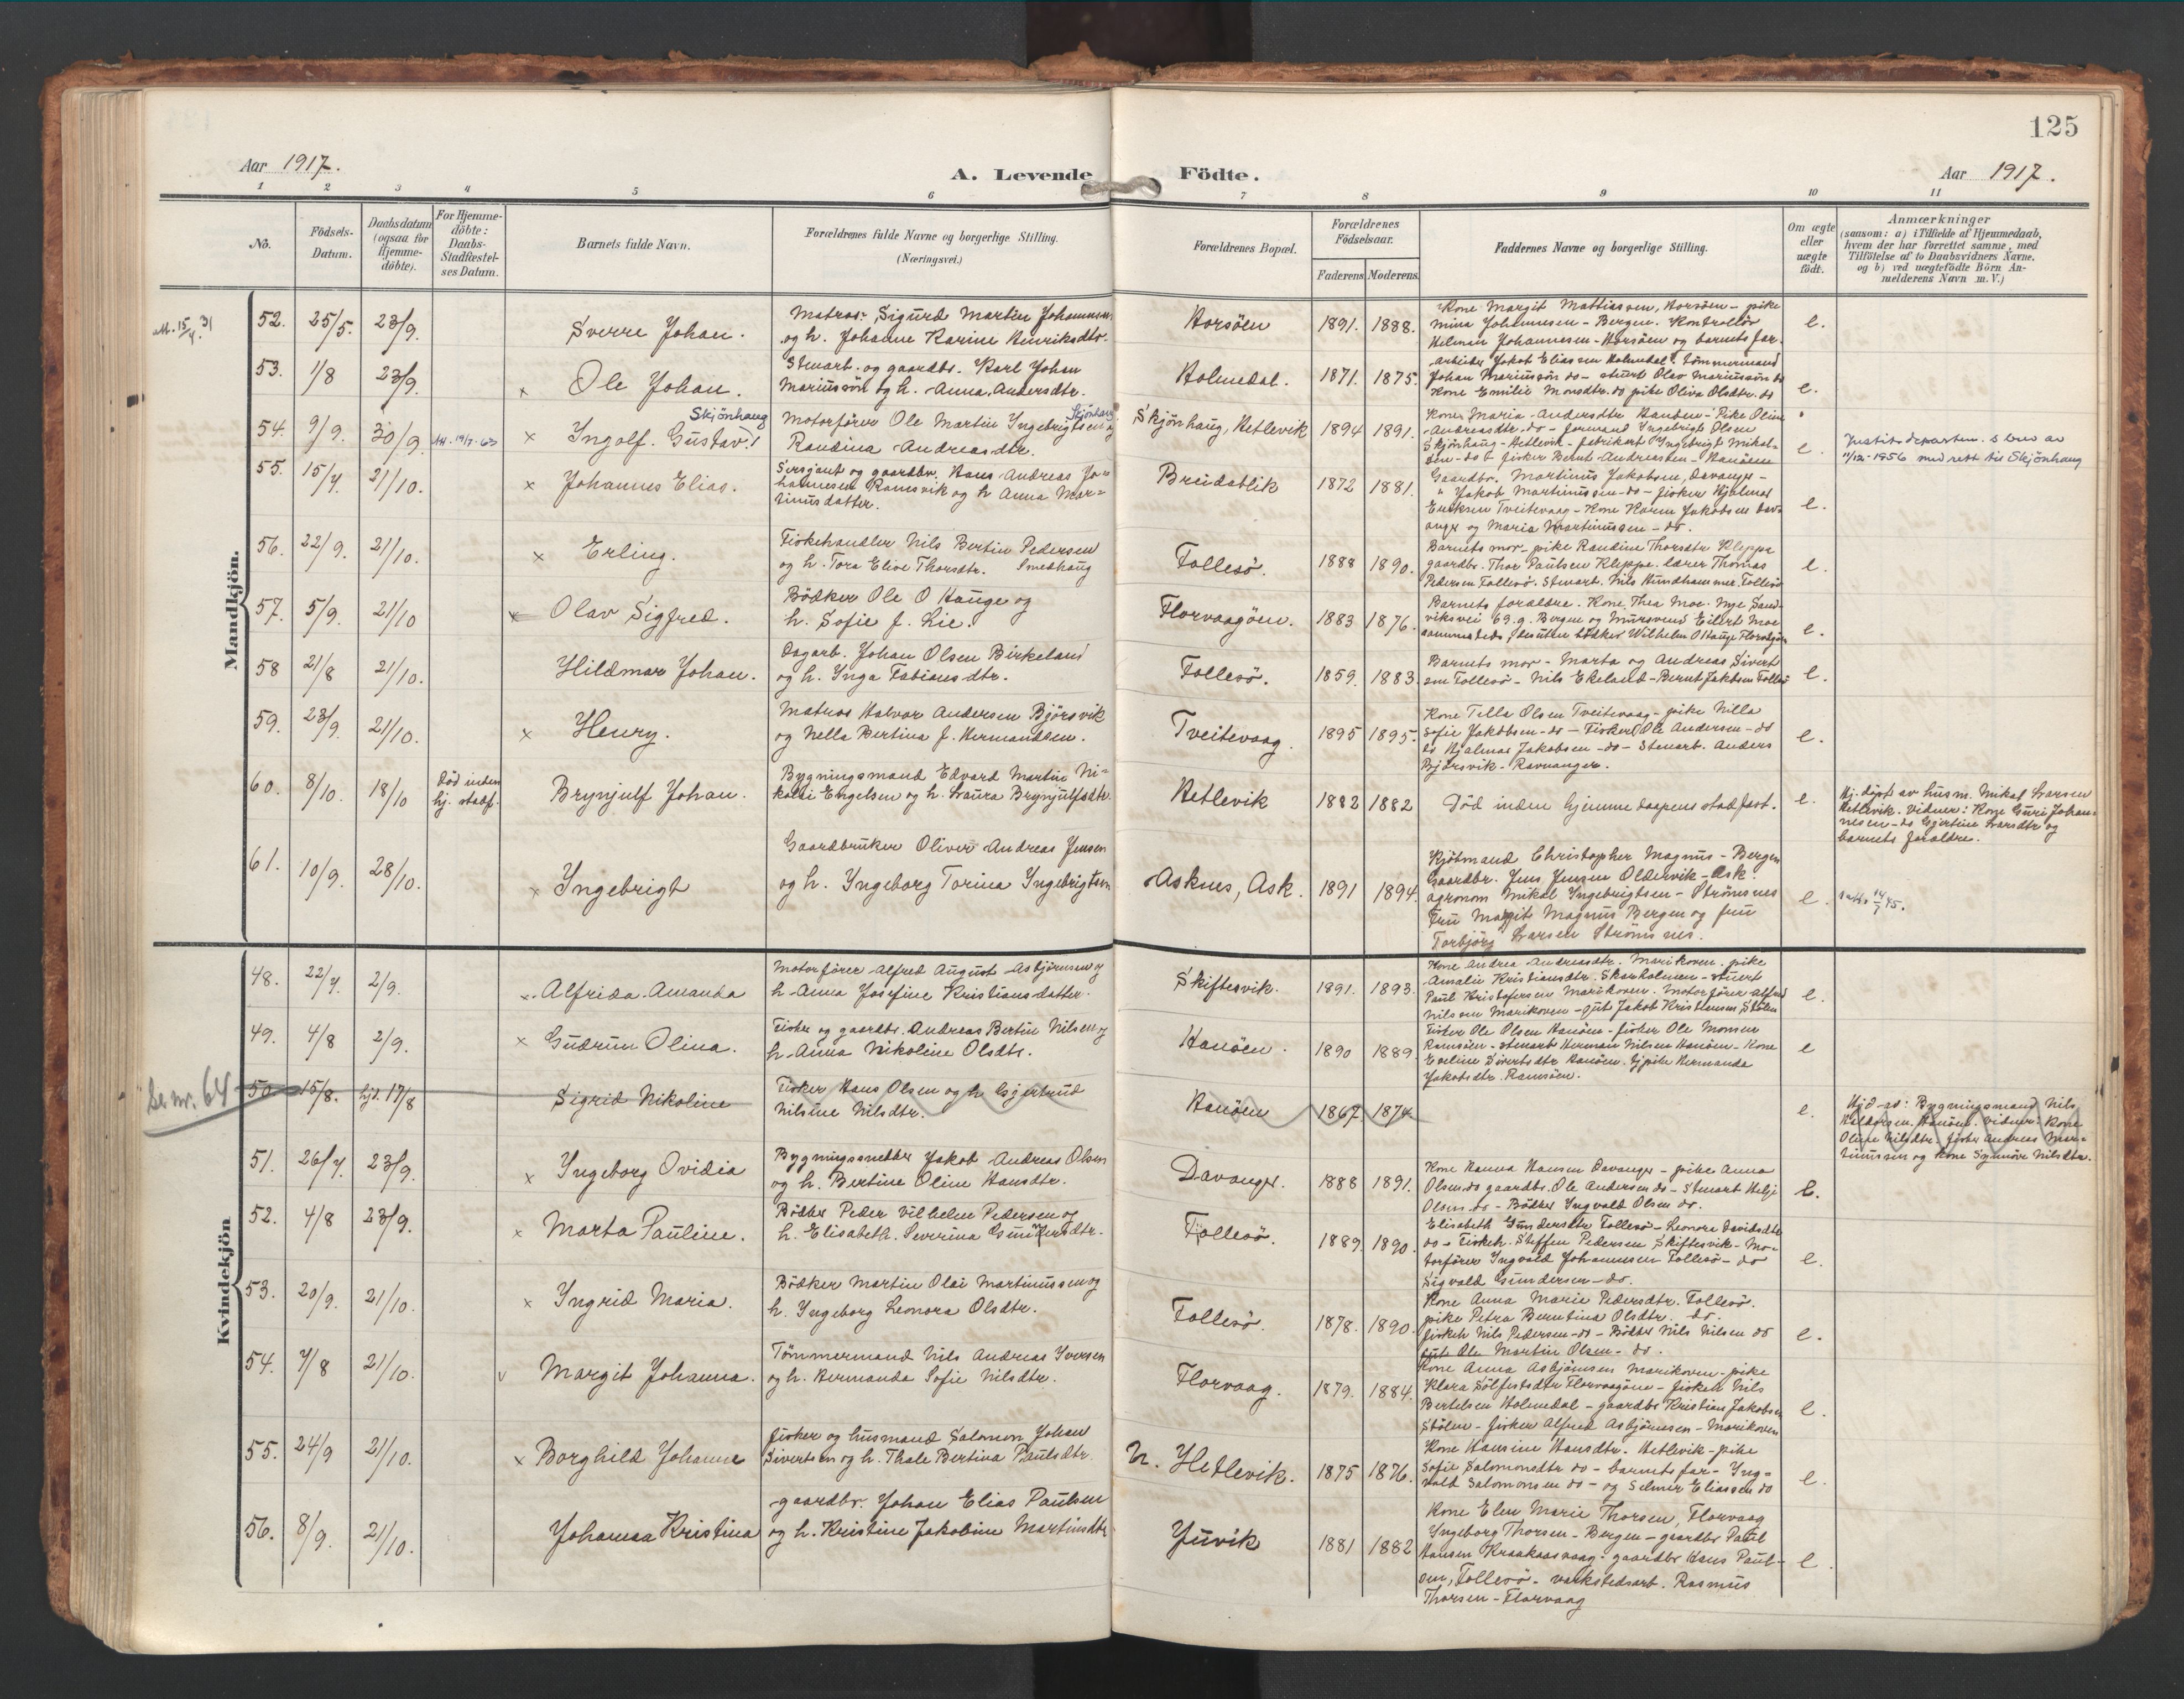 125
Aar 1917.
A. Levende Födte.
Aar 1917.
1 2 3 4 5 6 7 8 9 10 11
No.
Födsels-Datum.
Daabsdatum (ogsaa for Hjemme-döbte).
For Hjemme-döbte: Daabs-Stadfæstel-ses Datum.
Barnets fulde Navn.
Forældrenes fulde Navne og borgerlige Stilling.
(Næringsvei.)
Forældrenes Bopæl.
Forældrenes Födselsaar.
Faderens. Moderens.
Faddernes Navne og borgerlige Stilling.
Om ægte eller uægte födt.
Anmærkninger
(saasom: a) i Tilfælde af Hjemmedaab,
hvem der har forrettet samme, med
Tilföielse af to Daabsvidners Navne,
og b) ved uægtefödte Börn An-
melderens Navn m.V.)
Mandkjön.
52. 25/5. 23/9. Sverre Johan.
Matros Sigurd Martin Johannesen
og h. Johanne Karine Henriksdtr.
Horsöen 1891. 1888.
Kone Margit Mattiassen, Horsöen - pike
Mina Johannesen - Bergen. Kontrollör
Hilmar Johannesen - Horsöen og barnets far.
e.
53. 1/8 23/9. x Ole Johan.
Stenarb. og gaardbr. Karl Johan
Mariussön og h. Anna Andersdtr.
Holmedal. 1871. 1875.
Arbeider Jakob Eliassen Holmedal. Tömmermand
Johan Mariussön do - stuert Olav Mariussön do
Kone Emilie Monsdtr. do pike Oliva Olsdtr. do
e.
54. 9/9. 30/9. x Ingolf Gustav. Skjönhaug
Motorförer Ole Martin Ingebrigtsen og Skjönhaug
Randina Andreasdtr.
Skjönhaug, Hetlevik 1894 1891.
Kone Maria Andersdtr Hauöen - Pike Oline
Andreasdtr. do - formand Ingebrigt Olsen
Skjönhaug - Hetlevik - fabrikarb Ingebrigt Mikal-
sen - do - fisker Bernt Andreassen - Hanöen
e.
11/12-1956 med rett til Skjönhaug
55. 15/7. 21/10. x Johannes Elias.
Sersjant og gaardbr. Hans Andreas Jo-
hannesen Ramsvik og h Anna Mar-
tinusdatter.
Breidablik 1872 1881.
Gaardbr. Martinus Jakobsen, Davanger -
" Jakob Martinussen - do - fisker Hjalmar
Eriksen Tveitevaag - Kone Karen Jakobsen Dav-
anger og Maria Martinussen - do.
e.
56. 22/9. 21/10. x Erling.
Fiskehandler Nils Bertin Pedersen
og h. Tora Elive Thorsdtr. Smedhaug
Follesö. 1888 1890.
Barnets mor - pike Randine Thorsdtr Kleppe
gaardbr. Thor Paulsen Kleppe. lærer Thomas
Pedersen Follesö. Stenarb. Nils Hundhammer Follesö
e.
57. 5/9. 21/10 x Olav Sigfred.
Bödker Ole O Hauge og
h. Sofie f. Lie.
Florvaagöen. 1883 1876.
Barnets forældre. Kone Thea Moe. Nye Sand-
viksvei 69.g. Bergen og Mursvend Eilert Moe
sammesteds, desuten bödker Wilhelm O Hauge Florvaagöen
e.
58 21/8 21/10. Hildmar Johan.
Dagarb. Johan Olsen Birkeland
og h. Inga Fabiansdtr.
Follesö. 1859. 1883.
Barnets mor - Marta og Andreas Sivert
sen Follesö - Nils Ekeland - Bernt Jakobsen Follesö
e.
59. 23/9. 21/10. x Henry.
Matros Halvor Andersen Björsvik
og Nella Bertina f. Hermandsen.
Tveitevaag. 1895 1895.
Kone Tella Olsen Tveitevaag - pike Nilla
Sofie Jakobsen - do - Fisker Ole Andersen - do
do Hjalmar Jakobsen - do - Stenarb. Anders
Björsvik - Ravnanger.
e.
60. 8/10. 18/10 Död inden hj. stadf. Brynjulf Johan.
Bygningsmand Edvard Martin Ni-
kolai Engelsen og h. Laura Brynjulfsdtr.
Hetlevik 1882 1882
Död inden hjemmedaapens stadfæst.
e.
Hj. döpt av husm. Mikal Larsen
Hetlevik. Vidner: Kone Guri Johan-
nesen - do Gjertine Larsdtr og
barnets forældre.
61. 10/9. 28/10. x Ingebrigt
Gaardbruker Oliver Andreas Jensen
og h. Ingeborg Torina Ingebrigtsen
Asknes, Ask. 1891 1894.
Kjötmand Christopher Magnus - Bergen
Gaardbr. Jens Jensen Oldervik - Ask.
Agronom Mikal Ingebrigtsen - Strömsnes
Fru Margit Magnus Bergen og fru
Torbjörg Larsen Strömsnes.
e.
Kvindekjön
48. 22/7. 2/9. x Alfrida Amanda
Motorförer Alfred August Asbjörnsen og
h. Anna Josefine Kristiansdatter.
Skiftesvik. 1891. 1893.
Kone Andrea Andreasdtr. Marikoven. pike
Amalie Kristiansdtr. Skarholmen - stuert
Paul Kristofersen Marikoven. Motorförer Alfred
Nilssen Marikoven - gut Jakob Kristiansen Stölen
e.
49. 4/8 2/9. x Gudrun Olina.
Fisker og gaardbr. Andreas Bertin Nilsen og
h. Anna Nikoline Olsdtr.
Hanöen. 1890 1889.
Fisker Ole Olsen Hanöen - fisker Ole Monsen
Ramsöen - stenarb Herman Nilsen Hanöen - Kone
Eveline Sivertsdtr Hanöen. Gjpike Hermanda
Jakobsdtr. Ramsöen.
e
Se nr. 64
50. 15/8. hjd. 17/8 Sigrid Nikoline
Fisker Hans Olsen og h Gjertrud
Nilsine Nilsdtr.
Hanöen 1867. 1874
e.
Hjd av: Bygningsmand Nils
Haldorsen. Hanöen. Vidner: Kone
Oline Nilsdtr. fisker Andreas Mar-
tinussen og Kone Synnöve Nilsdtr.
51. 26/7 23/9. x Ingeborg Ovidia
Bygningssnekker Jakob Andreas Olsen
og h. Bertine Oline Hansdtr.
Davanger. 1888 1891.
Kone Hanna Hansen Davanger - pike Anna
Olsen do gaardbr. Ole Andersen do - Stenarb Helje
Olsen do - Bödker Ingvald Olsen do.
e.
52. 4/8 23/9. x Marta Pauline.
Bödker Peder Vilhelm Pedersen og
h. Elisabeth Severina Gundersdtr.
Follesö. 1889. 1890.
Elisabeth Gundersdtr Follesö - Leonora Davidsdtr
do - Fiskeh. Steffen Pedersen Skiftesvik - Mo-
torförer Ingvald Johannesen Follesö - do
Sigvald Gundersen - do.
e.
53. 20/9. 21/10. x Ingrid Maria.
Bödker Martin Olai Martinussen og
h. Ingeborg Leonora Olsdtr.
Follesö. 1878. 1890.
Kone Anna Marie Pedersdtr. Follesö.
pike Petra Berntina Olsdtr. do.
fiskeh Nils Pedersen - do - Bödker Nils Nilsen do
gut Ole Martin Olsen - do.
e.
54. 7/8 21/10. v Margit Johanna.
Tömmermand Nils Andreas Iversen
og h. Hermanda Sofie Nilsdtr.
Florvaag. 1879. 1884.
Kone Anna Asbjörnsen Marikoven - pike
Klara Sölfestsdtr Florvaagöen - fisker Nils
Bertelsen Holmedal - gaardbr Kristian Jakobsen
Stölen - fisker Alfred Asbjörnsen - Marikoven
e.
55. 24/9 21/10. x Borghild Johanne
Fisker og husmand Salomon Johan
Sivertsen og h. Thale Bertina Paulsdtr.
N. Hetlevik. 1875 1876.
Kone Hansine Hansdtr. Hetlevik - pike
Sofie Salomonsdtr do - barnets far - Ing-
vald Salomonsen do - og Selmer Eliassen do
e.
56. 8/9. 21/10. Johanna Kristina
gaardbr. Johan Elias Paulsen
og h. Kristine Jakobine Martinsdtr
Juvik 1881 1882
Kone Elen Marie Thorsen, Florvaag
Ingeborg Thorsen - Bergen - gaardbr Paul
Hansen Kraakaasvaag. gaardbr Hans Paul-
sen, Follesö - verkstedsarb. Rasmus
Thorsen - Florvaag
e.